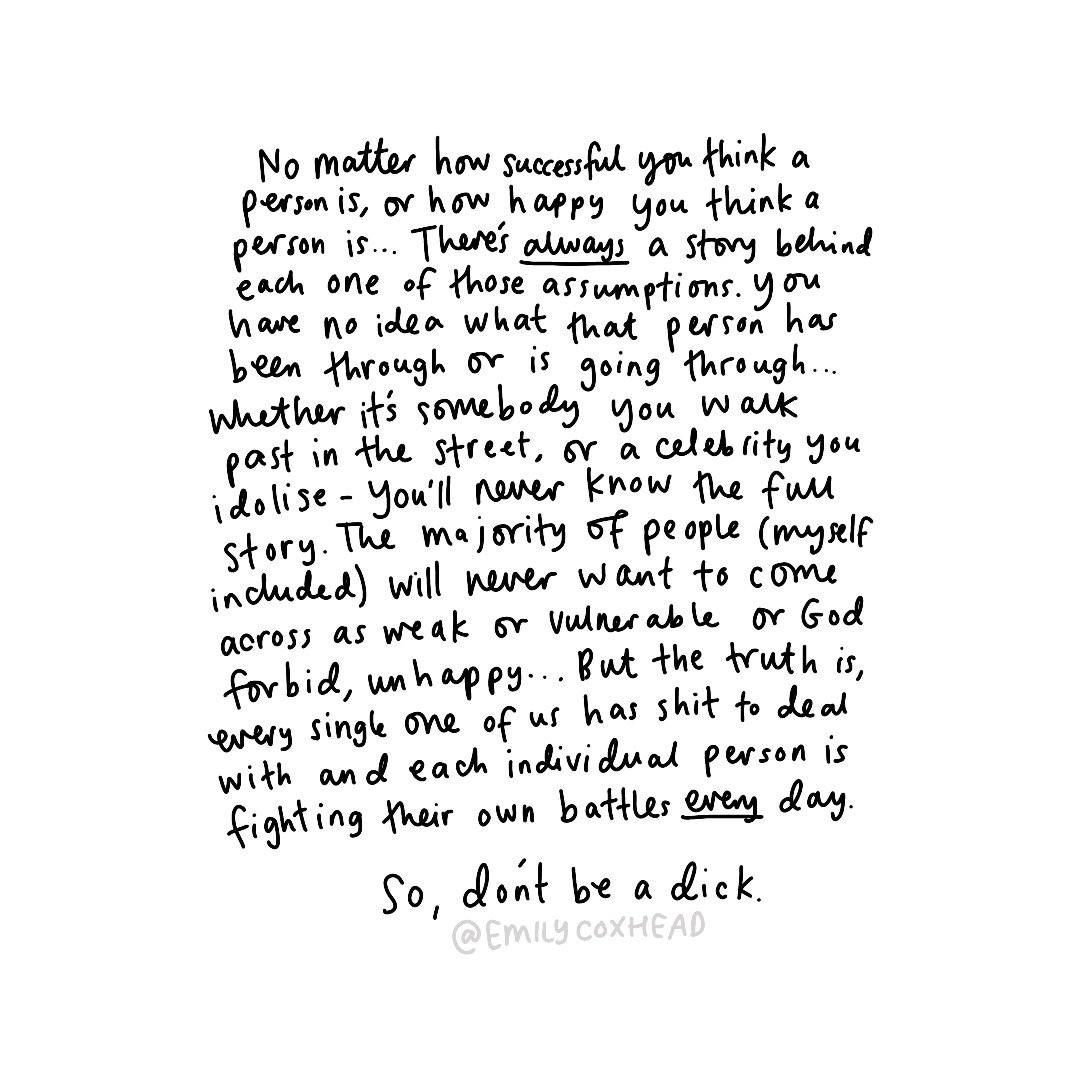 No matter how successful you think a
person is, or how happy you think a
person is... There's always a story behind
each one of those assumptions. You
have no idea what that person has
been through or is going through...
Whether it's somebody you walk
past in the street, or a celebrity you
idolise - You'll never know the full
story. The majority of people (myself
included) will never want to come
across as weak or vulnerable or God
forbid, unhappy... But the truth is,
every single one of us has shit to deal
with and each individual person is
fighting their own battles every day.
So, don't be a dick.
@EMILYCOXHEAD